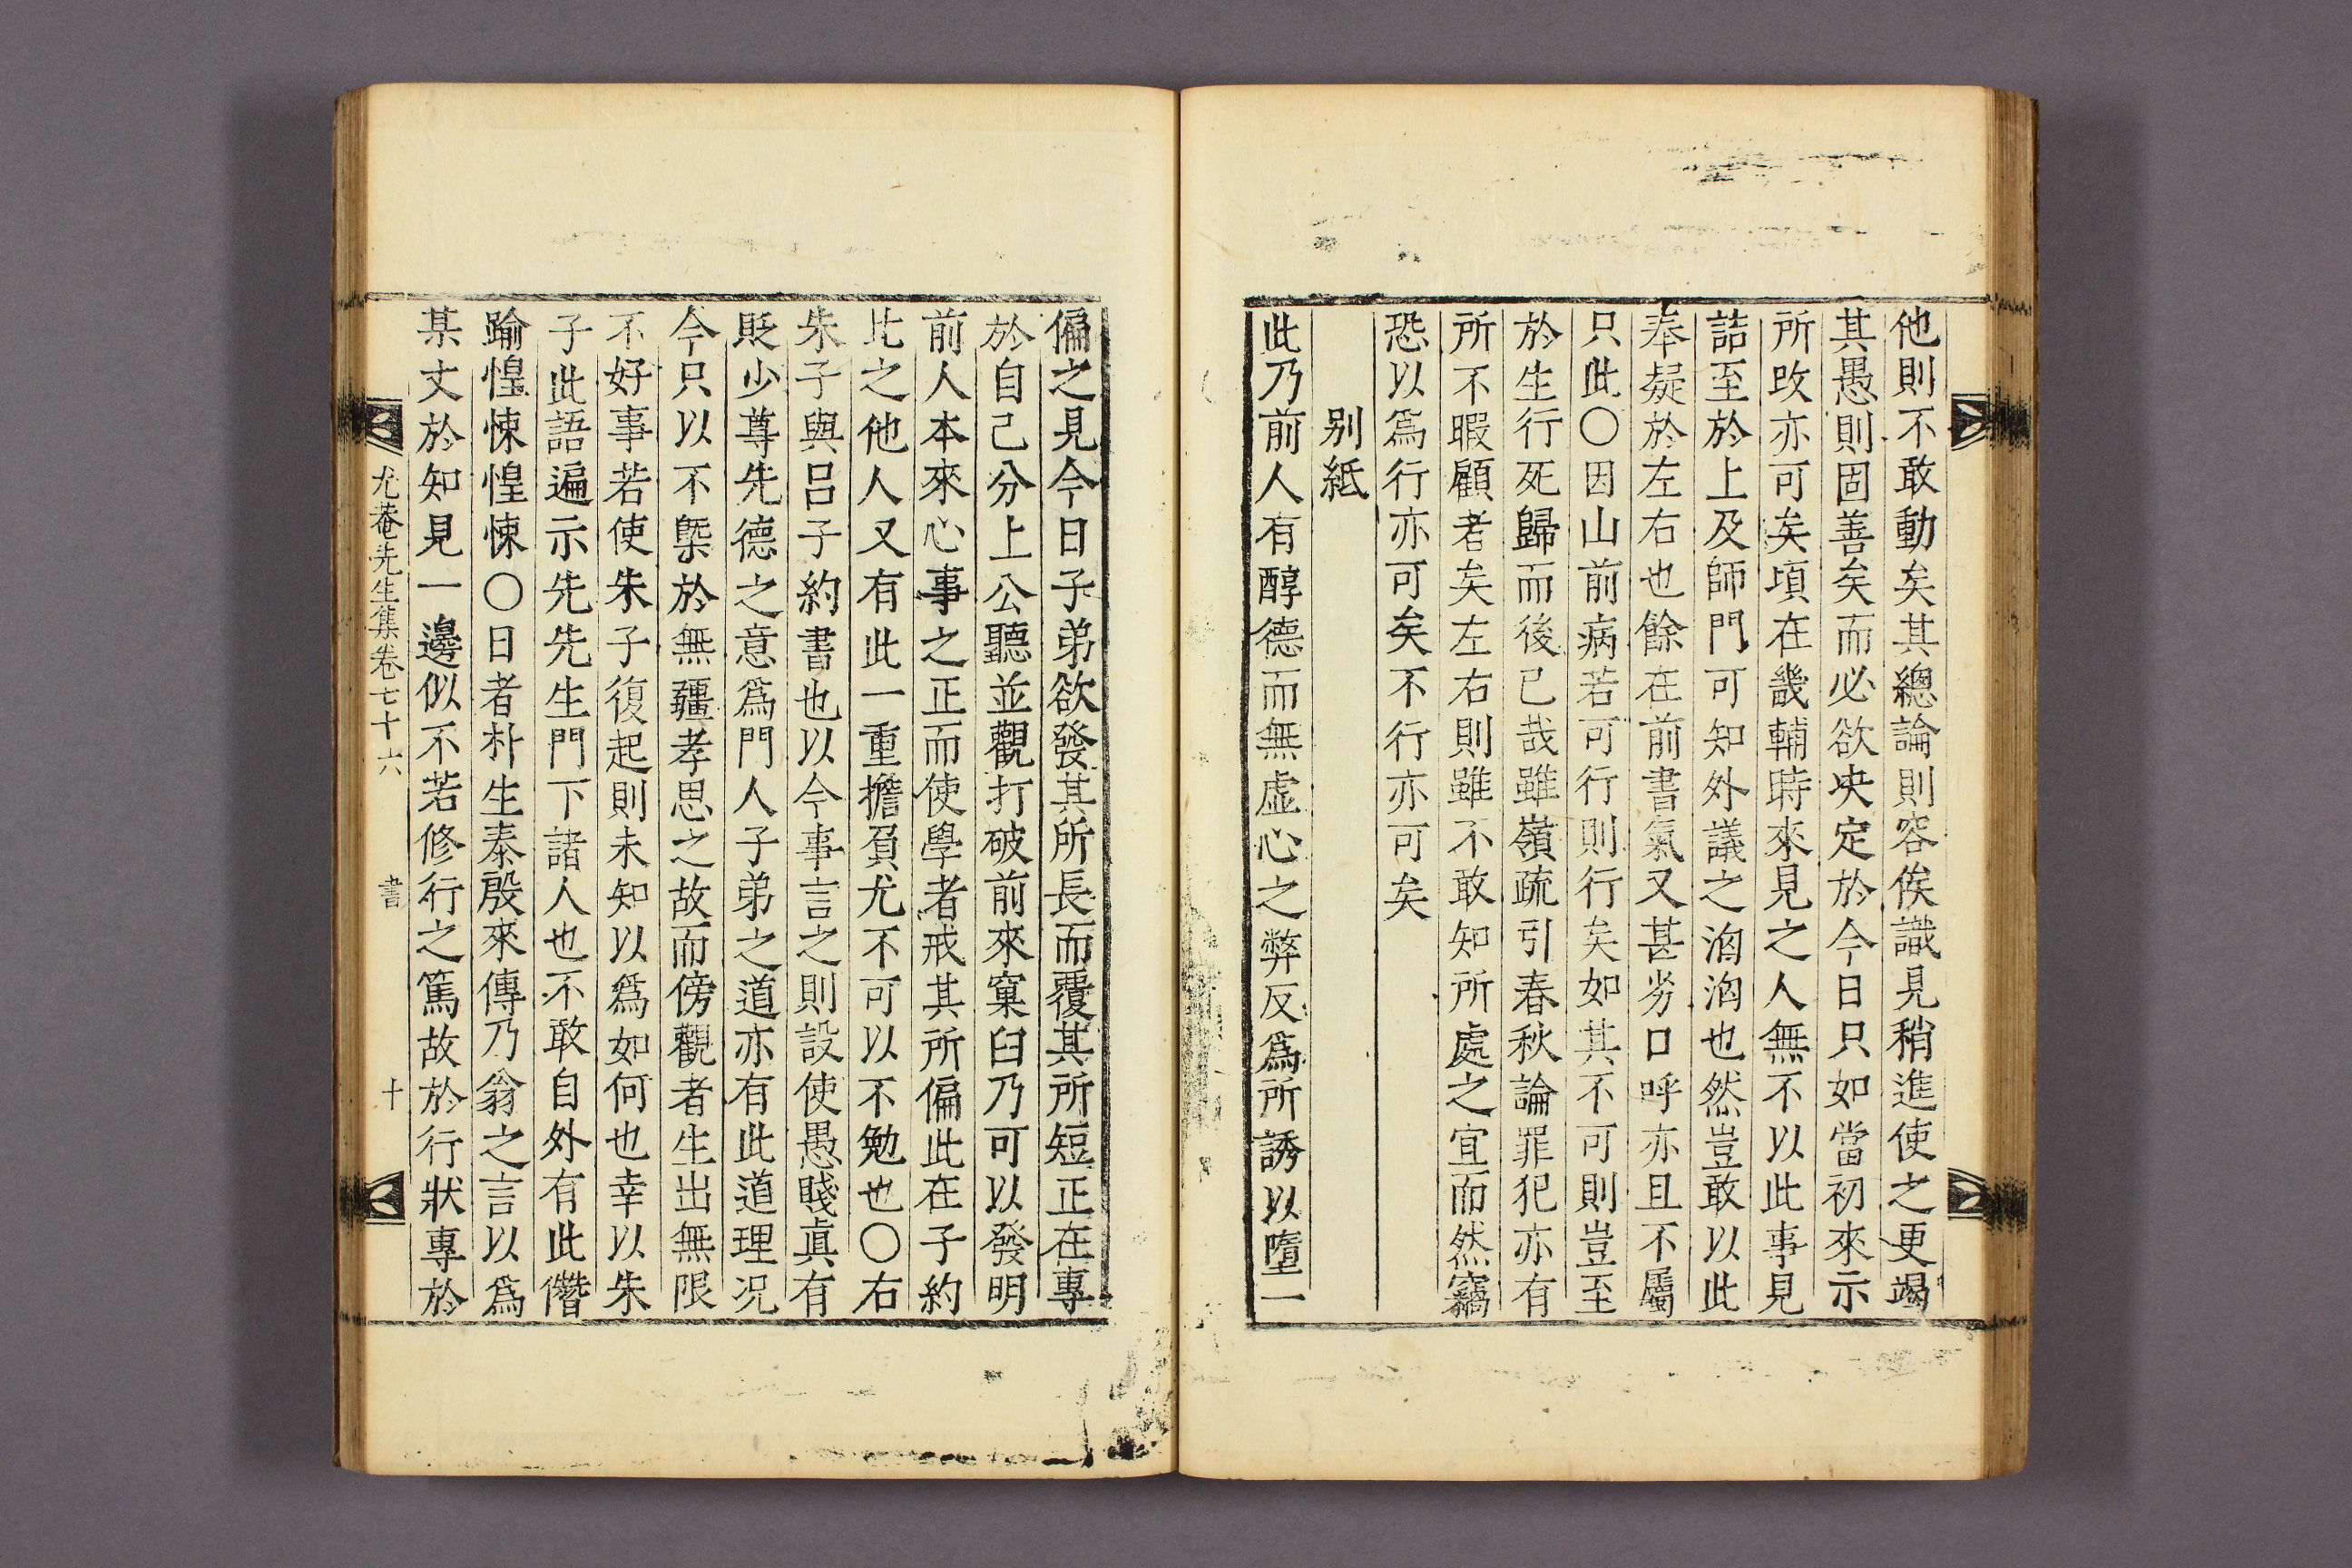 他則不敢動矣其總論則容俟識見稍進使之更竭
其愚則固善矣而必欲決定於今日只如當初來示
所改亦可矣頃在畿輔時來見之人無不以此事見
詰至於上及師門可知外議之洶洶也然豈敢以此
奉疑於左右也餘在前書氣又甚劣口呼亦且不屬
只此○因山前病若可行則行矣如其不可則豈至
於生行死歸而後已哉雖嶺疏引春秋論罪犯亦有
所不暇顧者矣左右則雖不敢知所處之宜而然竊
恐以爲行亦可矣不行亦可矣
別紙
此乃前人有醇德而無虛心之弊反爲所誘以墮一
偏之見今日子弟欲發其所長而覆其所短正在專
於自己分上公聽並觀打破前來窠臼乃可以發明
前人本來心事之正而使學者戒其所偏此在子約
比之他人又有此一重擔負尤不可以不勉也○右
朱子與呂子約書也以今事言之則設使愚賤眞有
貶少尊先德之意爲門人子弟之道亦有此道理况
今只以不槩於無疆孝思之故而傍觀者生出無限
不好事若使朱子復起則未知以爲如何也幸以朱
子此語遍示先先生門下諸人也不敢自外有此僭
踰惶悚惶悚○日者朴生泰殷來傳乃翁之言以爲
某丈於知見一邊似不若修行之篤故於行狀專於
尤菴先生集卷七十六 書 十